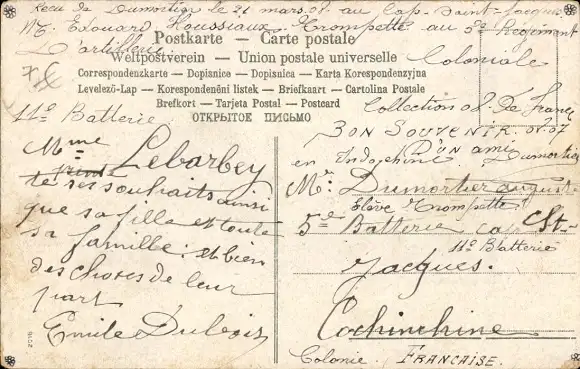 Recu de Dumortier le 21 mars. 08. au Cap-Saint-Jacques
Mr Edouard Houssiaux. Trompette au 5e Regiment
D'artillerie
Coloniale
Postkarte — Carte postale
Weltpostverein — Union postale universelle
Correspondenzkarte — Dopisnice — Dopisnica — Karta Korespondenzyjna
Levelező-Lap — Korespondenční listek — Briefkaart — Cartolina Postale
Brefkort — Tarjeta Postal — Postcard
ОТКРЫТОЕ ПИСЬМО
11e Batterie
Collection 08. De France
Mme Lebarbey
te ses souhaits ainsi
que sa fille et toute
sa famille. et bien
des choses de leur
part
Emile Dubois
BON SOUVENIR. 07.07
D'un ami
en Indochine Dumortier
Mr. Dumortier auguste
Elève Trompette
5e Batterie cap St-
11e Batterie
Jacques.
Cochinchine
Colonie. FRANCAISE.